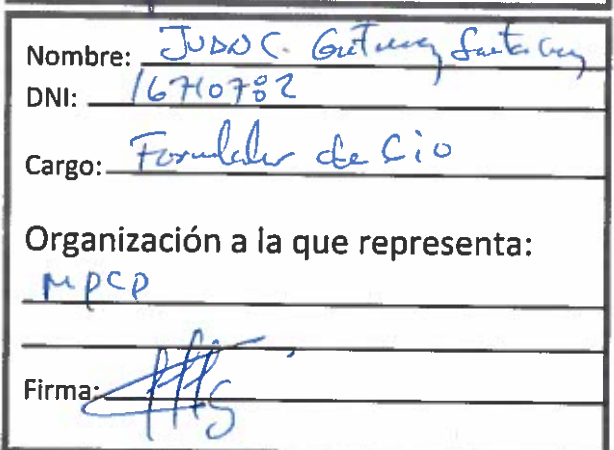 Nombre: JUAN C. Gutierrez Santa Cruz
DNI: 16710782
Cargo: Formulador de
Organización a la que representa:
MPCP
Firma: